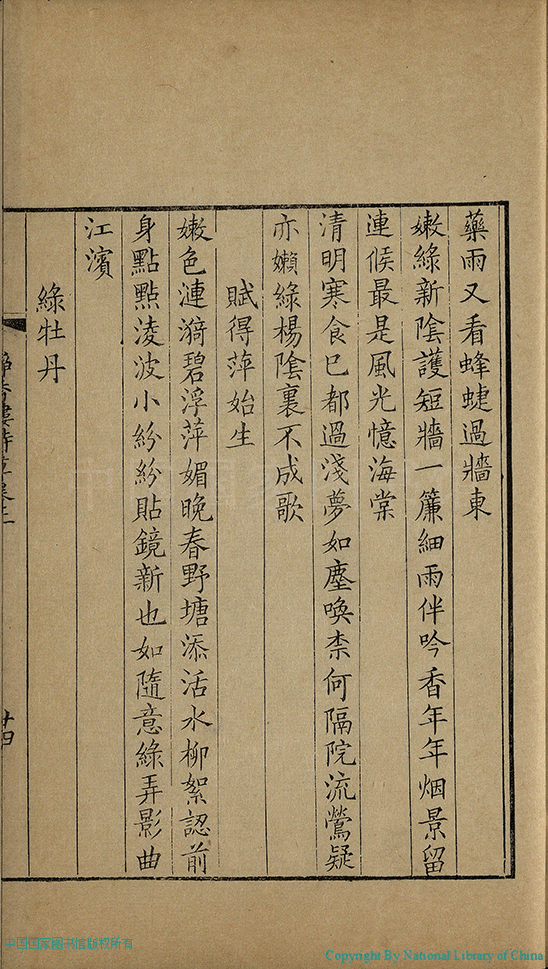 藥雨又看蜂蜨過牆東
嫩綠新陰護短牆一簾細雨伴吟香年年烟景留
連候最是風光憶海棠
清明寒食已都過淺夢如塵喚柰何隔院流鶯疑
亦嬾綠楊陰裏不成歌
賦得萍始生
嫩色漣漪碧浮萍媚晚春野塘添活水柳絮認前
身點點淩波小紛紛貼鏡新也如隨意綠弄影曲
江濱
綠牡丹
十四
中国国家图书馆版权所有
Copyright By National Library of China